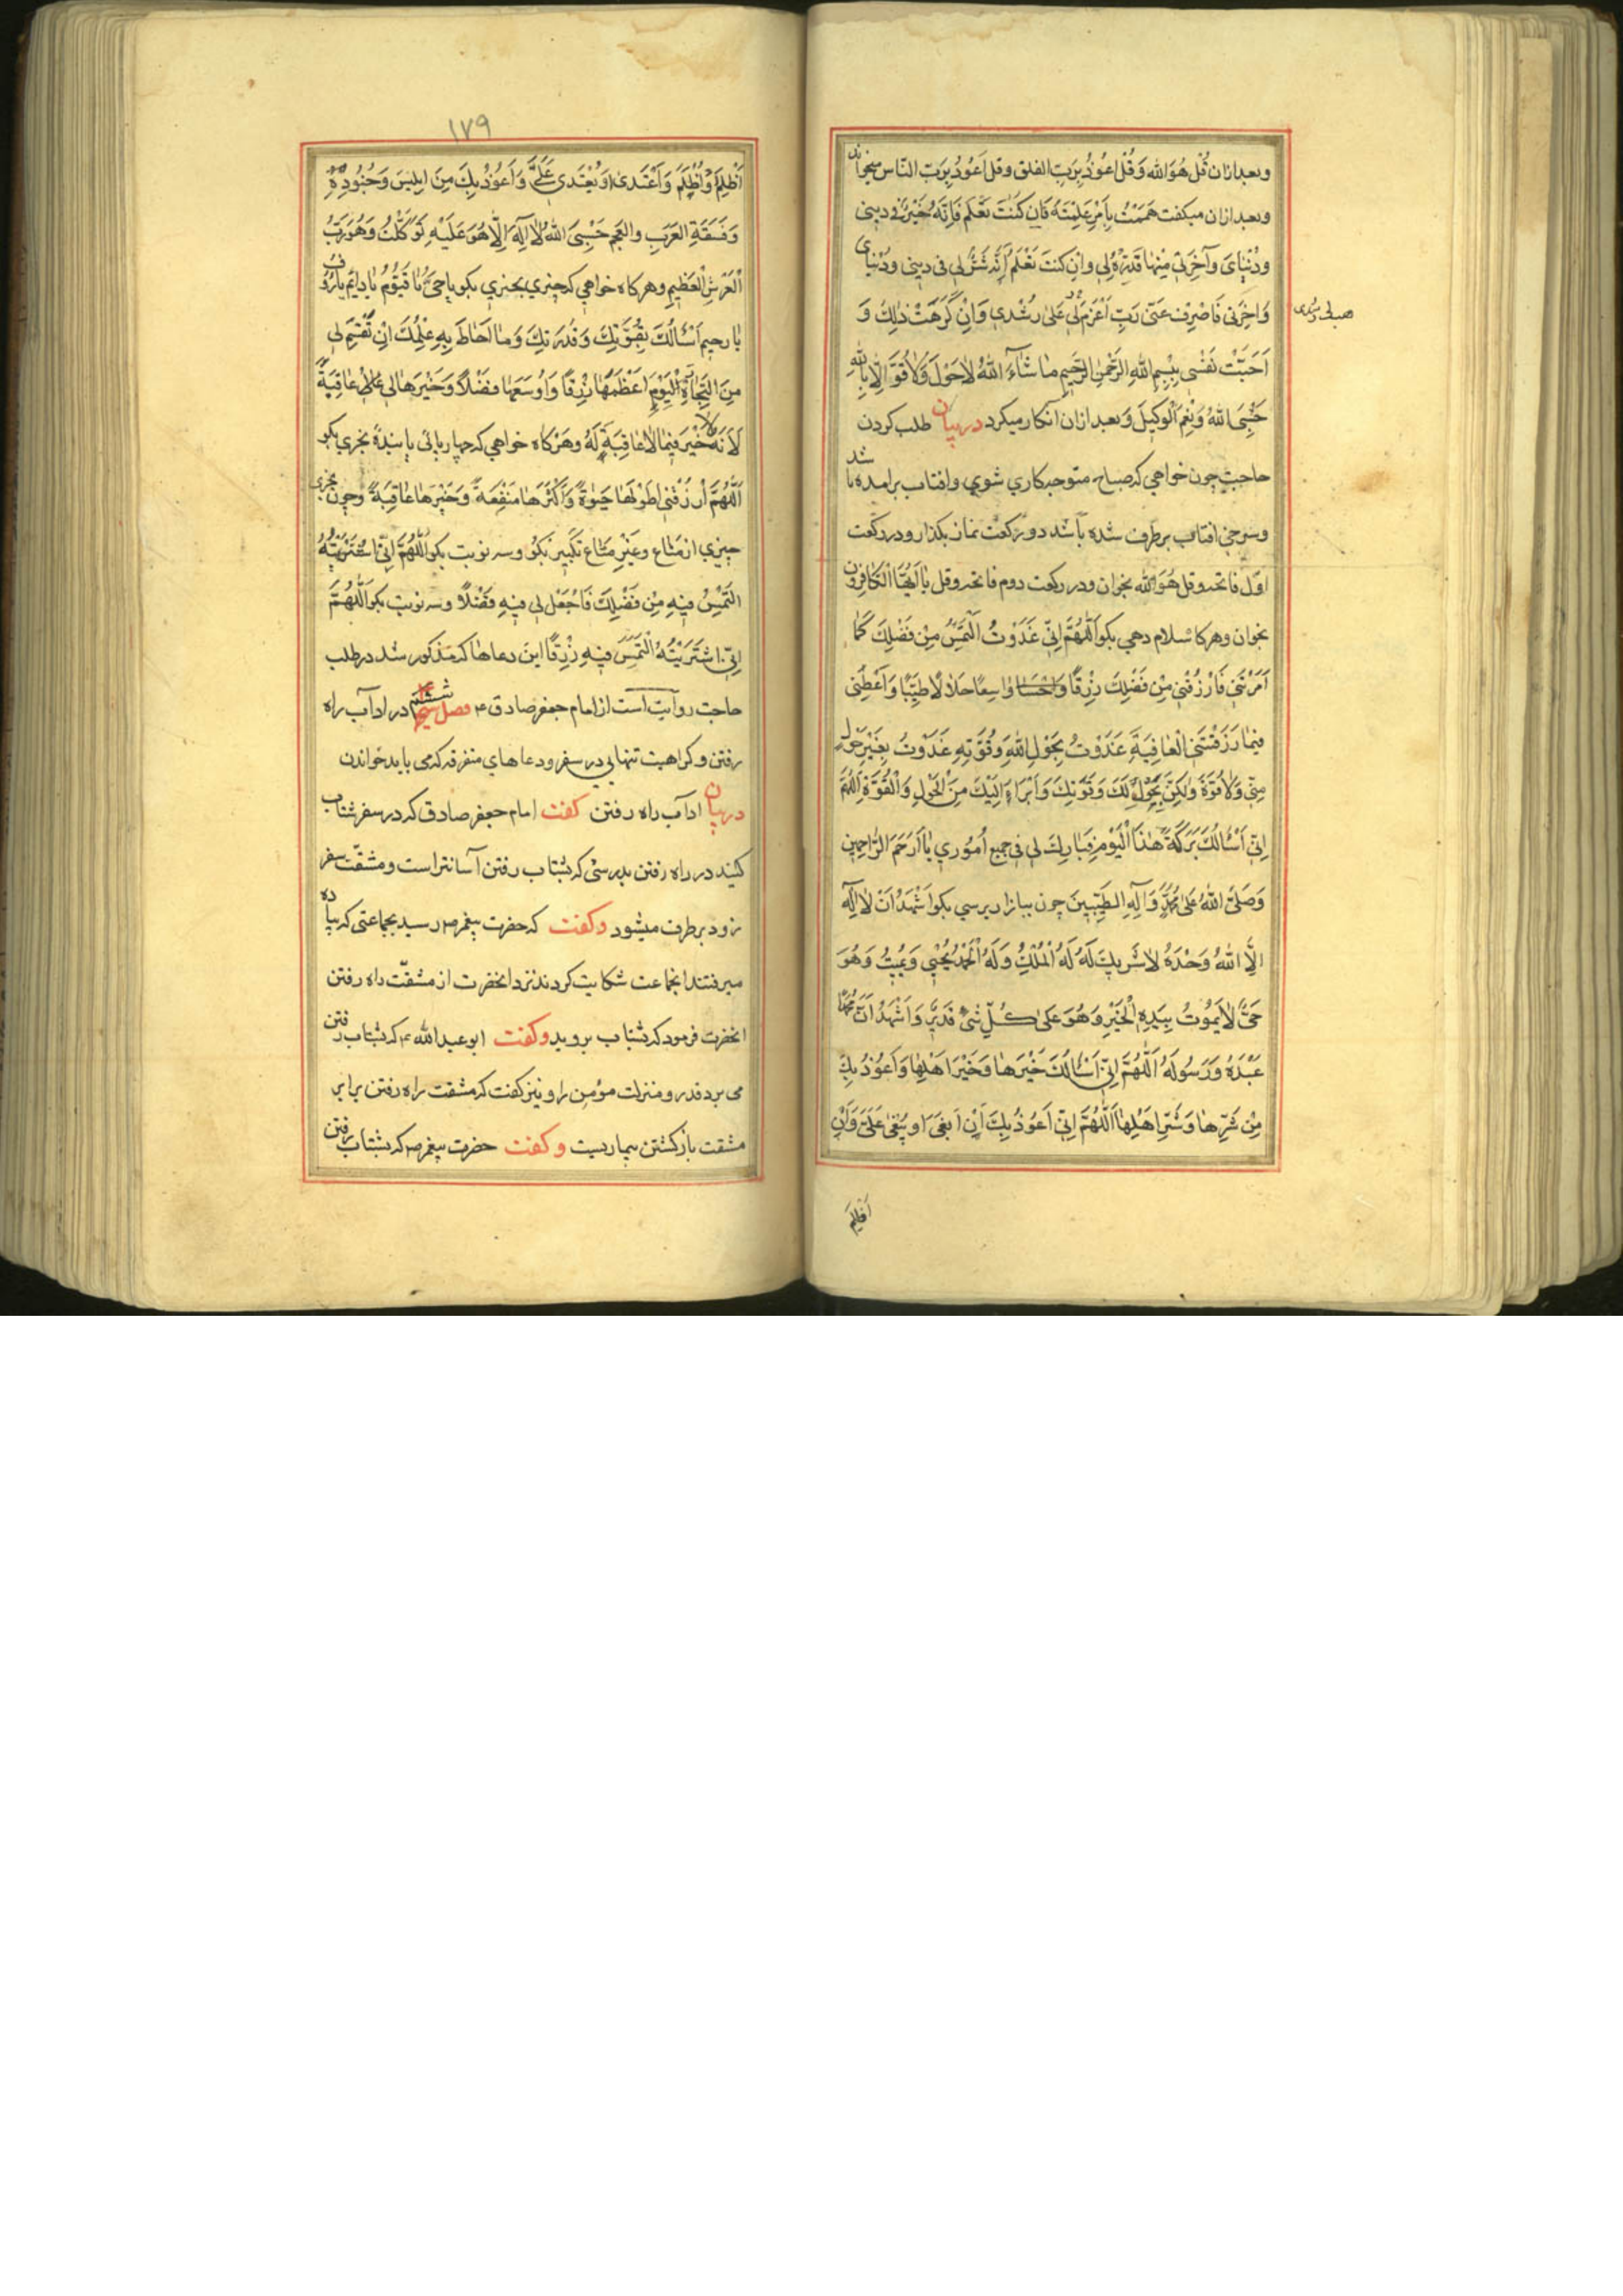 وبعد ازان قُل هُوَ الله وَقُل اعُوذُ بِرَبِّ الفلق وقل اَعُوذُ بِرَبِّ النّاس میخواند
وبعد ازان میکفت هَمَمْتُ بِاَمْرٍ عَلِمْتَهُ فَاِن كُنتَ تَعْلَم فَاِنَّهُ خَيْرٌ لي فی دینی
ودُنْيٰايَ وآخِرَتي مِنهٰا فَيَسِّرْهُ لِي وَاِن كنتَ تَعْلَمُ اَنَّهُ شَرٌّ لي فی دیني ودُنْيٰاي
وَاخِرَتي فَاصْرِف عَنّي رَبِّ اَعْزِمْ لي عَلىٰ رُشْدي وَاِنْ كَرَهَتْ ذٰلِكَ وَ
هب لی رشدی
اَحَبَّتْ نَفْسي بِبِسمِ اللهِ الرَّحمٰنِ الرَّحيمِ مٰا شٰاءَ اللهُ لٰا حَوْلَ وَلٰا قُوَّةَ اِلّا بِاللهِ
حَسْبِيَ اللهُ وَنِعْمَ الْوَكيلَ وَبعد ازان انکار میکرد در بیان طلب کردن
حاجت چون خواهي که صباح متوجه کاري شوي وافتاب برامده باشد
وسرخي افتاب برطرف شده باشد دو رکعت نماز بکذار ودر رکعت
اوّل فاتحه وقل هُوَ الله بخوان ودر رکعت دوم فاتحه وقل يٰا اَيُّهَا الْكٰافِرُون
بخوان وهرکاه سلام دهي بکو اَللّٰهُمَّ اِنّي غَدَوْتُ اَلْتَمِسُ مِنْ فَضْلِكَ كَمٰا
اَمَرْتَني فَارْزُقْني مِنْ فَضْلِكَ رِزْقًا وٰاسِعًا حَلٰالًا طَيِّبًا وَاَعْطِني
فيمٰا رَزَقْتَني الْعٰافِيَةَ غَدَوْتُ بِحَوْلِ اللهِ وَقُوَّتِهِ غَدَوْتُ بِغَيْرِ حَوْلٍ
مِنّي وَلٰا قُوَّةَ وَلٰكِنْ بِحَوْلِكَ وَقُوَّتِكَ وَاَبْرَاءُ اِلَيْكَ مِنَ الْحَوْلِ وَالْقُوَّةِ اَللّٰهُمَّ
اِنّي اَسْأَلُكَ بَرَكَةَ هٰذَا الْيَوْمِ فَبٰارِكْ لي في جميع اُمُوري يٰا اَرْحَمَ الرّٰاحِمين
وَصَلَّى اللهُ عَلىٰ مُحَمَّدٍ وَآلِهِ الطَّيِّبينَ چون ببازار برسي بکو اَشْهَدُ اَنْ لٰا اِلٰهَ
اِلَّا اللهُ وَحْدَهُ لٰا شَريكَ لَهُ لَهُ الْمُلْكُ وَلَهُ الْحَمْدُ يُحْيي وَيُميتُ وَهُوَ
حَيٌّ لٰا يَمُوتُ بِيَدِهِ الْخَيْرُ وَهُوَ عَلىٰ كُلِّ شَيْءٍ قَديرٌ وَاَشْهَدُ اَنَّ مُحَمَّدًا
عَبْدُهُ وَرَسُولُهُ اَللّٰهُمَّ اِنّي اَسْأَلُكَ خَيْرَهٰا وَخَيْرَ اَهْلِهٰا وَاَعُوذُ بِكَ
مِنْ شَرِّهٰا وَشَرِّ اَهْلِهٰا اَللّٰهُمَّ اِنّي اَعُوذُ بِكَ اَنْ اَبْغيَ اَو يُبْغىٰ عَلَيَّ وَاَنْ
اَظلِمَ
١٧٩
اَظْلِمَ وَاُظْلَمَ وَاَعْتَدي اَوْ يُعْتَدى عَلَيَّ وَاَعُوذُ بِكَ مِنَ ابليسَ وَجُنُودِهِ
وَفَسَقَةِ العَرَبِ والعَجَمِ حَسْبِيَ اللهُ لٰا اِلٰهَ اِلّا هُوَ عَلَيْهِ تَوَكَّلْتُ وَهُوَ رَبُّ
الْعَرْشِ الْعَظيمِ وهرکاه خواهي که چیزي بخري بکو يا حَيُّ يٰا قَيُّومُ يٰا دٰايِمُ يٰا رَؤُف
يٰا رحيم اَسْأَلُكَ بِقُوَّتِكَ وَقُدْرَتِكَ وَمٰا اَحٰاطَ بِهِ عِلْمُكَ اَنْ تَقْسِمَ لي
مِنَ التِّجٰارَةِ الْيَوْمَ اَعْظَمَهٰا رِزْقًا وَاَوْسَعَهٰا فَضْلًا وَخَيْرَهٰا لي عٰاقِبَةً
لِاَنَّهُ لٰا خَيْرَ فيمٰا لٰا عٰاقِبَةَ لَهُ وهَرْکاه خواهي که چهارپائی یا بندهٔ بخري بکو
اَللّٰهُمَّ اُرْزُقْني اَطْوَلَهٰا حَيٰوةً وَاَكْثَرَهٰا مَنْفَعَةً وَخَيْرَهٰا عٰاقِبَةً وچون بخری
چیزي از متاع وغیر متاع تکبیر بکو وسه نوبت بکو اَللّٰهُمَّ اِنّي اشْتَرَيْتُهُ
اَلتَمِسُ فيهِ مِنْ فَضْلِكَ فَاجْعَلْ لي فيهِ فَضْلًا وسه نوبت بکو اَللّٰهُمَّ
اِنّي اشْتَرَيْتُهُ اَلْتَمِسُ فيهِ رِزْقًا این دعاها که مذکور شد در طلب
حاجت روایت است از امام جعفر صادق ع فصل ششم در اداب راه
رفتن وکراهیت تنهایي در سفر ودعاهاي متفرقه که می باید خواندن
در بیان اداب راه رفتن کفت امام جعفر صادق که در سفر شتاب
کنید در راه رفتن بدرستی که بشتاب رفتن آسانتر است ومشقّت سفر
زود برطرف میشود وکفت که حضرت پیغمبر ص رسید بجماعتی که پیاده
میرفتند انجماعت شکایت کردند نزد انحضرت از مشقّت راه رفتن
انحضرت فرمود که بشتاب بروید وکفت ابو عبد الله ع که بشتاب رفتن
می برد قدر ومنزلت مؤمن را ونیز کفت که مشقت راه رفتن برابر
مشقت بازکشتن بیماریست وکفت حضرت پیغمبر ص که بشتاب رفتن